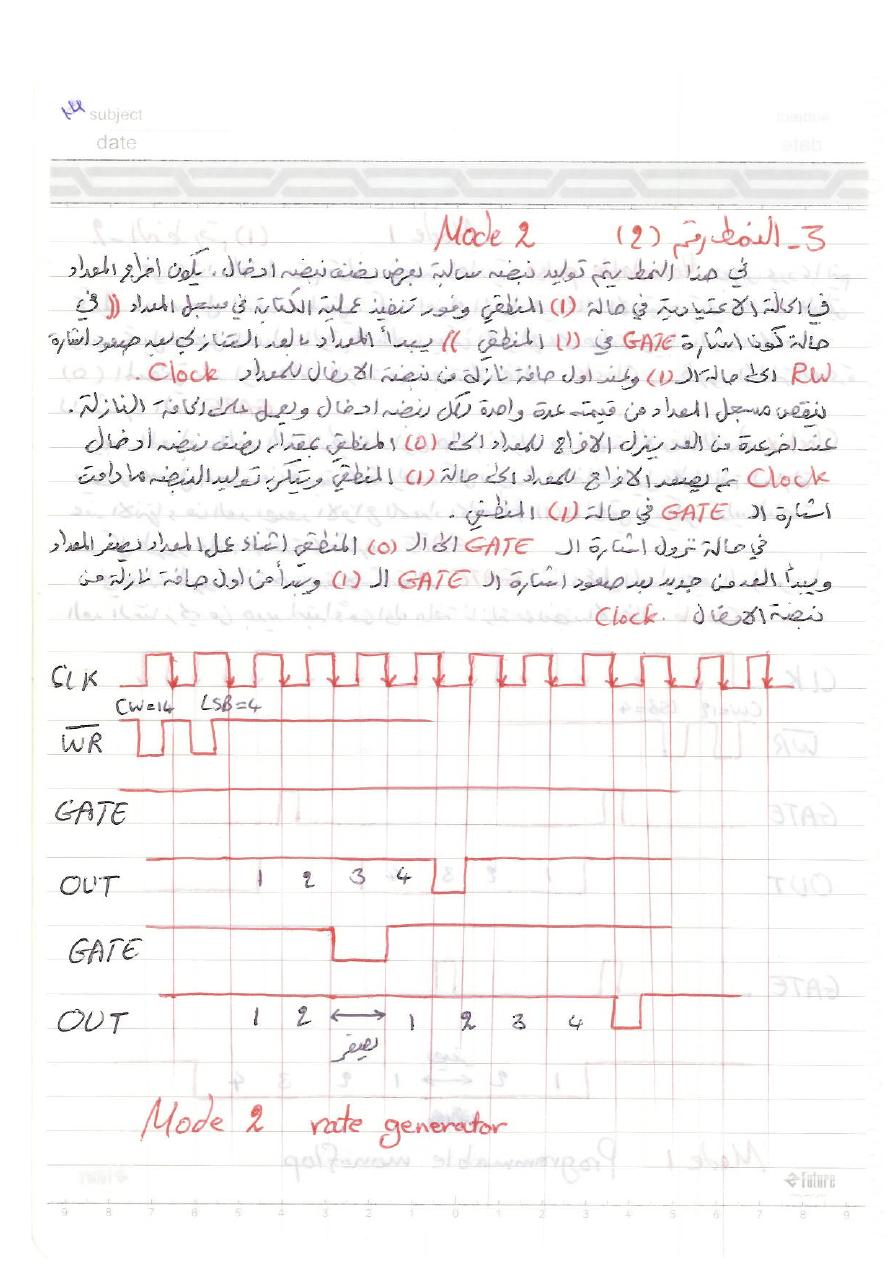 subject
date
3- النمط رقم (2) Mode 2
في هذا النمط يتم توليد نبضه سالبة بعرض نصف نبضه ادخال. يكون اخراج العداد
في الحالة الاعتيادية في حالة (1) المنطقي وفور تنفيذ عملية الكتابة في مسجل العداد (( في
حالة كون اشارة GATE في (1) المنطقي )) يبدأ العداد بالعد التنازلي بعد صعود اشارة
RW الى حالة الـ (1) وعند اول حافة نازلة من نبضة الادخال للعداد Clock.
ينقص مسجل العداد من قيمته عدة واحدة لكل نبضه ادخال ويعمل على الحافة النازلة.
عند اخر عدة من العد ينزل الاخراج للعداد الى (0) المنطقي بمقدار نصف نبضه أدخال
Clock ثم يصعد الاخراج للعداد الى حالة (1) المنطقي ويتكرر توليد النبضه ما دامت
اشارة الـ GATE في حالة (1) المنطقي.
في حالة نزول اشارة الـ GATE الى الـ (0) المنطقي اثناء عمل العداد يصفر العداد
ويبدأ العد من جديد بعد صعود اشارة الـ GATE الـ (1) ويبدأ من اول حافة نازلة من
نبضة الادخال Clock.
CLK
CW=14 LSB=4
WR
GATE
OUT 1 2 3 4
GATE
OUT 1 2 1 2 3 4
يصفر
Mode 2 rate generator
Future
9 8 7 6 5 4 3 2 1 0 1 2 3 4 5 6 7 8 9